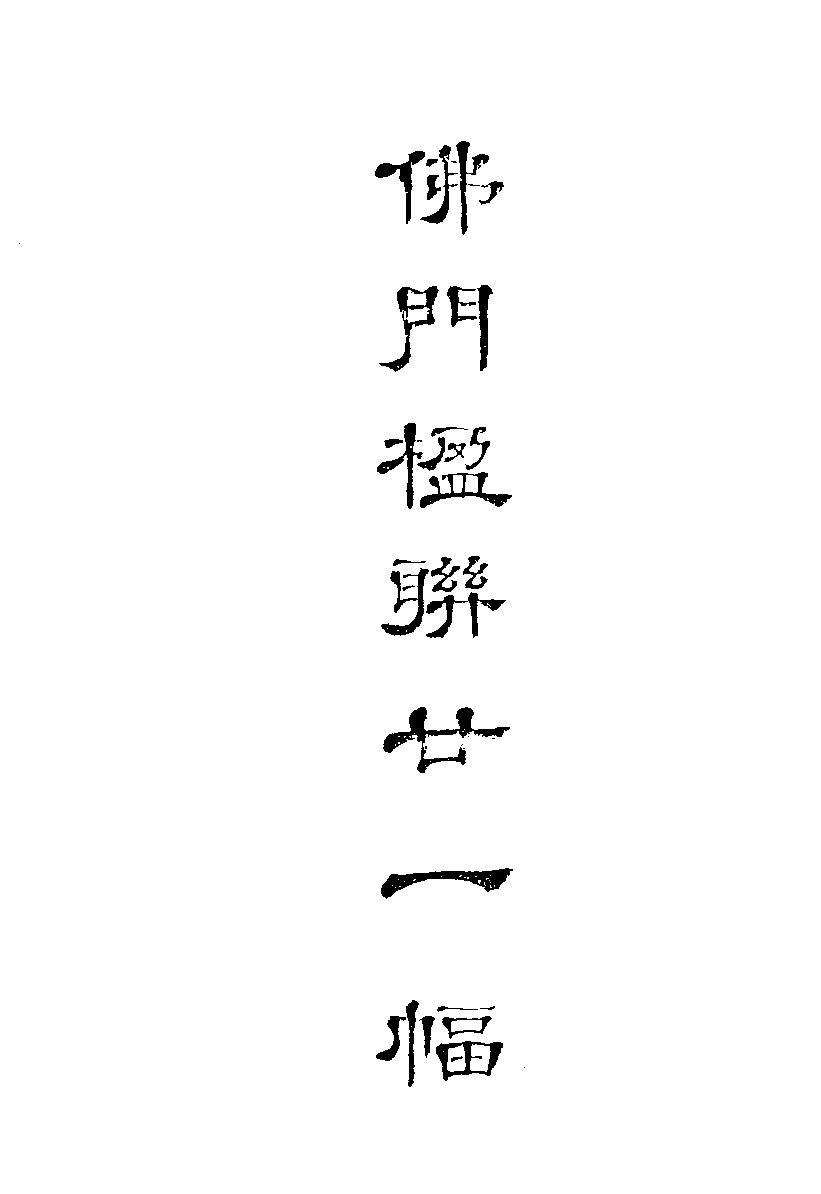 佛門楹聯廿一幅